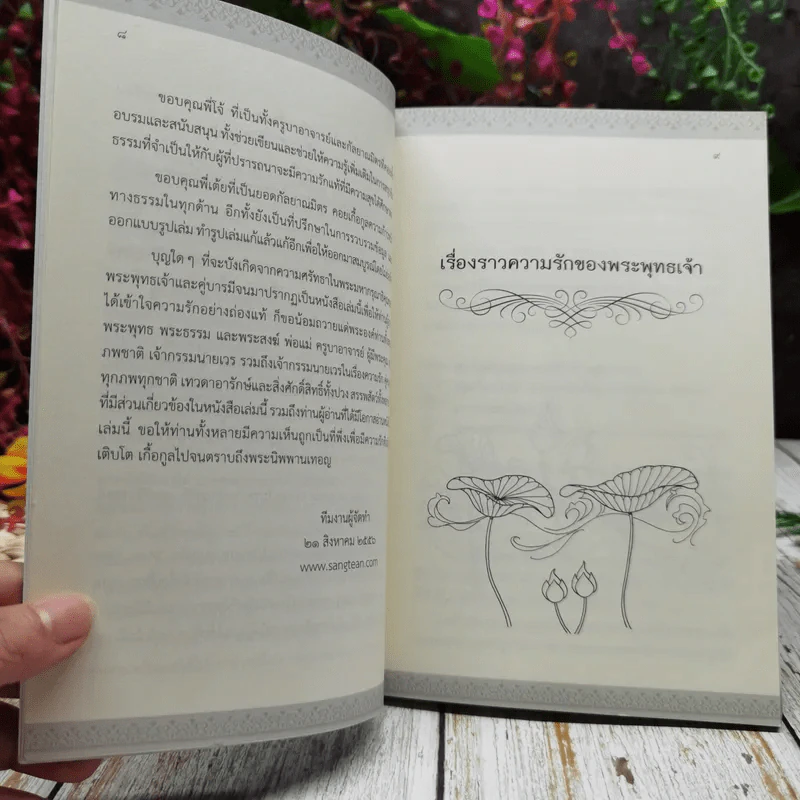 ๘
ขอบคุณพี่โจ้ ที่เป็นทั้งครูบาอาจารย์และกัลยาณมิตรที่คอย
อบรมและสนับสนุน ทั้งช่วยเขียนและช่วยให้ความรู้เพิ่มเติมในการ
ธรรมที่จำเป็นให้กับผู้ที่ปรารถนาจะมีความรักแท้ที่มีความสุข
ขอบคุณพี่เต้ยที่เป็นยอดกัลยาณมิตร คอยเกื้อกูลความก้าว
ทางธรรมในทุกด้าน อีกทั้งยังเป็นที่ปรึกษาในการรวบรวมข้อมูล
ออกแบบรูปเล่ม ทำรูปเล่มแก้แล้วแก้อีกเพื่อให้ออกมาสมบูรณ์
บุญใดๆ ที่จะบังเกิดจากความศรัทธาในพระมหากรุณาธิคุณ
พระพุทธเจ้าและคู่บารมีจนมาปรากฏเป็นหนังสือเล่มนี้เพื่อให้
ได้เข้าใจความรักอย่างถ่องแท้ ก็ขอน้อมถวายแด่พระองค์ท่าน
พระพุทธ พระธรรม และพระสงฆ์ พ่อแม่ ครูบาอาจารย์ ผู้มีพระ
ภพชาติ เจ้ากรรมนายเวร รวมถึงเจ้ากรรมนายเวรในเรื่องความรัก
ทุกภพทุกชาติ เทวดาอารักษ์และสิ่งศักดิ์สิทธิ์ทั้งปวง สรรพสัตว์
ที่มีส่วนเกี่ยวข้องในหนังสือเล่มนี้ รวมถึงท่านผู้อ่านที่ได้มีโอกาสอ่าน
เล่มนี้ ขอให้ท่านทั้งหลายมีความเห็นถูกเป็นที่พึ่งเพื่อมีความรัก
เติบโต เกื้อกูลไปจนตราบถึงพระนิพพานเทอญ
ทีมงานผู้จัดทำ
๒๑ สิงหาคม ๒๕๕๖
www.sangtean.com
๙
เรื่องราวความรักของพระพุทธเจ้า